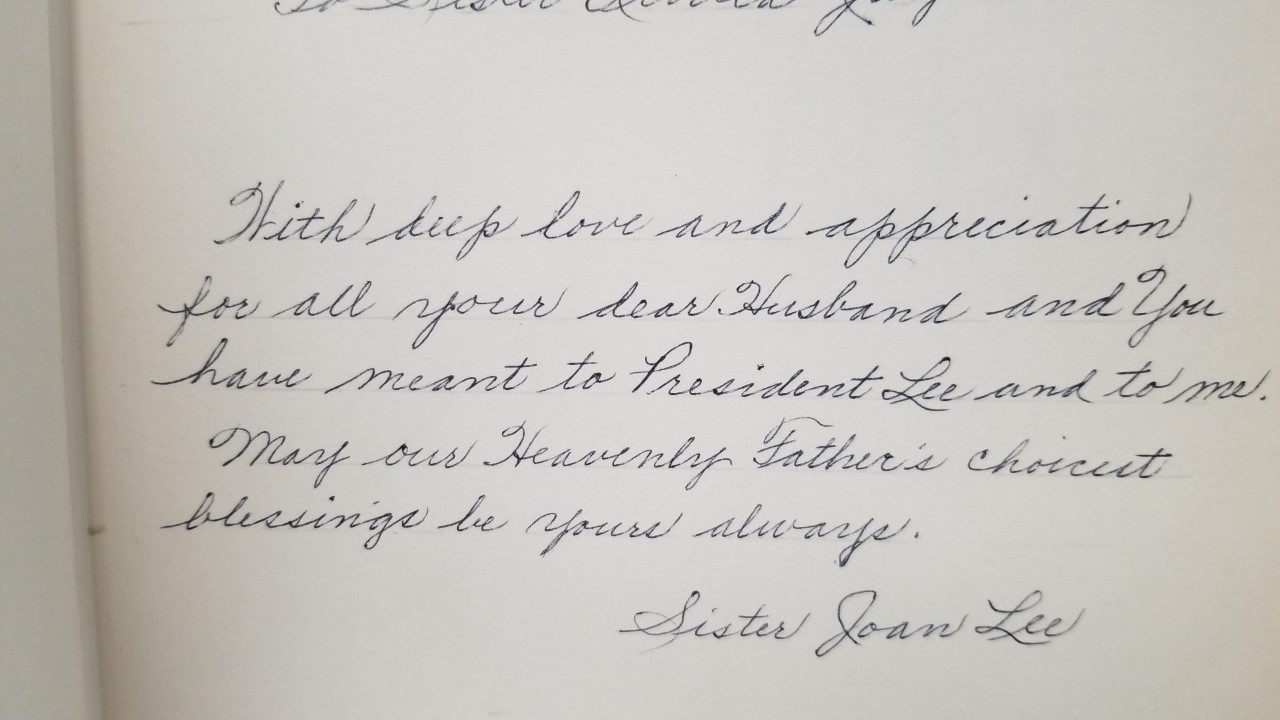 To Sister
With deep love and appreciation
for all your dear Husband and You
have meant to President Lee and to me.
May our Heavenly Father's choicest
blessings be yours always.
Sister Joan Lee